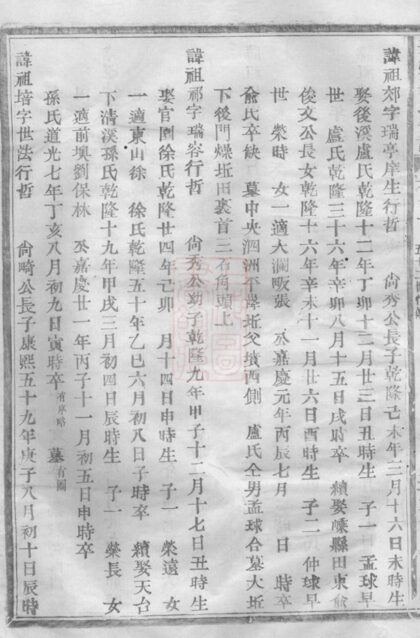 諱祖郊字瑞亭庠生行哲　尙秀公長子乾隆己未年三月十六日未時生
娶後溪盧氏乾隆十二年丁卯十二月廿三日丑時生　子一　孟球早
世　盧氏乾隆三十六年辛卯八月十五日戌時卒　續娶嵊縣田東俞
俊文公長女乾隆十六年辛未十一月廿六日酉時生　子二　仲球早
世　榮時　女一適大瀾畈張　丞嘉慶元年丙辰七月　　日　時卒
俞氏卒缺　墓中央泗洲下舉坵父墳西側　盧氏仝男孟球合墓大坵
下後門燥坵田裏首三石角頭上
諱祖祁字瑞容行哲　尙秀公幼子乾隆九年甲子十二月十七日丑時生
娶官園徐氏乾隆廿四年己卯　月十四日申時生　子一　榮遠　女
一適東山徐　徐氏乾隆五十年乙巳六月初八日子時卒　續娶天台
下清溪孫氏乾隆十九年甲戌三月初四日辰時生　子一　榮長　女
一適前墺劉保林　丞嘉慶廿一年丙子十一月初五日申時卒
孫氏道光七年丁亥八月初九日寅時卒有序略　墓有圖
諱祖培字世法行哲　尙畸公長子康熙五十九年庚子八月初十日辰時